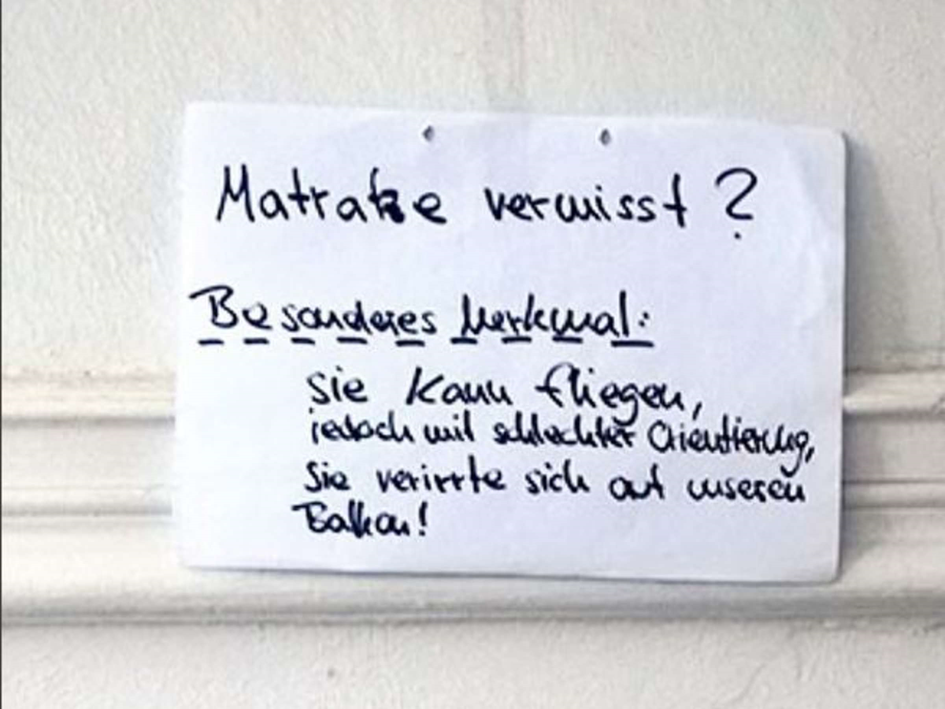 Matratze vermisst ?
Besonderes Merkmal:
sie kann fliegen,
jedoch mit schlechter Orientierung,
sie verirrte sich auf unseren
Balkon!